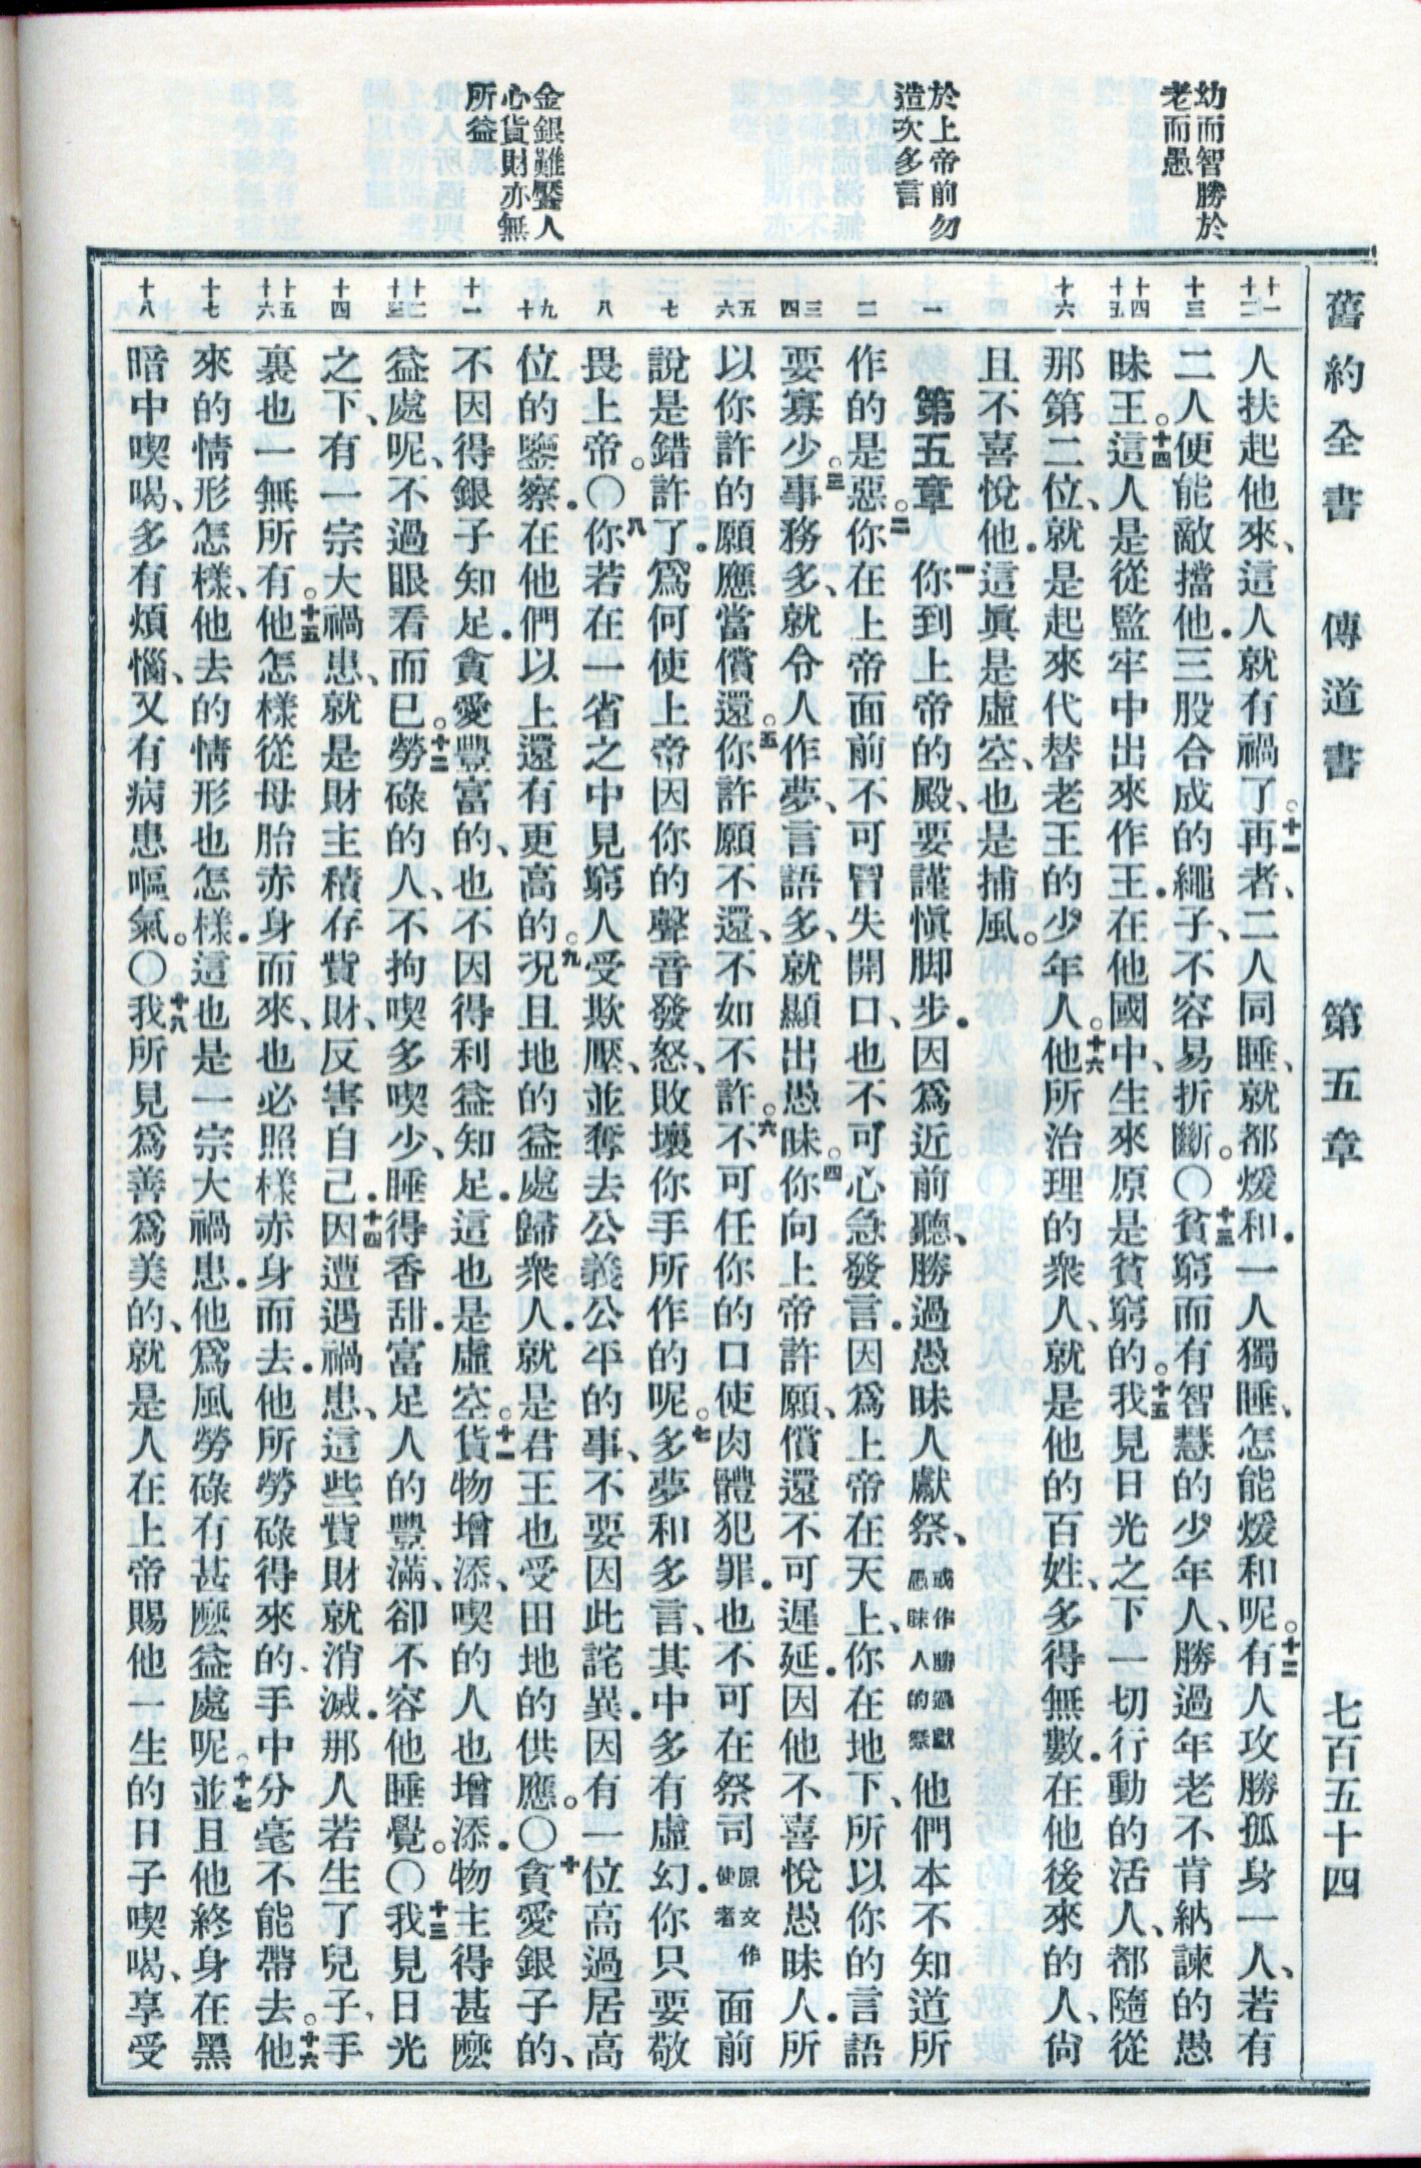 舊約全書 傳道書 第五章 七百五十四
幼而智勝於
老而愚
於上帝前勿
造次多言
金銀難饜人
心貨財亦無
所益
十一
十二
十三
十四
十五
十六
一
二
三
四
五
六
七
八
九
十
十一
十二
十三
十四
十五
十六
十七
十八
人扶起他來、這人就有禍了。十一再者、二人同睡、就都煖和．一人獨睡、怎能煖和呢。十二有人攻勝孤身一人、若有
二人便能敵擋他．三股合成的繩子、不容易折斷。〇十三貧窮而有智慧的少年人、勝過年老不肯納諫的愚
昧王。十四這人是從監牢中出來作王．在他國中、生來原是貧窮的。十五我見日光之下一切行動的活人、都隨從
那第二位、就是起來代替老王的少年人。十六他所治理的衆人、就是他的百姓、多得無數．在他後來的人、尙
且不喜悅他．這眞是虛空、也是捕風。
第五章 一你到上帝的殿、要謹慎脚步．因爲近前聽、勝過愚昧人獻祭、或作勝過獻愚昧人的祭他們本不知道所
作的是惡。二你在上帝面前不可冒失開口、也不可心急發言．因爲上帝在天上、你在地下、所以你的言語
要寡少。三事務多、就令人作夢、言語多、就顯出愚昧。四你向上帝許願、償還不可遲延．因他不喜悅愚昧人．所
以你許的願應當償還。五你許願不還、不如不許。六不可任你的口使肉體犯罪．也不可在祭司原文作使者面前
說是錯許了．爲何使上帝因你的聲音發怒、敗壞你手所作的呢。七多夢和多言、其中多有虛幻．你只要敬
畏上帝。〇八你若在一省之中見窮人受欺壓、並奪去公義公平的事、不要因此詫異．因有一位高過居高
位的鑒察．在他們以上還有更高的。九況且地的益處歸衆人．就是君王也受田地的供應。〇十貪愛銀子的、
不因得銀子知足．貪愛豐富的、也不因得利益知足．這也是虛空。十一貨物增添、喫的人也增添．物主得甚麼
益處呢、不過眼看而已。十二勞碌的人、不拘喫多喫少、睡得香甜．富足人的豐滿、卻不容他睡覺。〇十三我見日光
之下、有一宗大禍患、就是財主積存貲財、反害自己．十四因遭遇禍患、這些貲財就消滅．那人若生了兒子、手
裏也一無所有。十五他怎樣從母胎赤身而來、也必照樣赤身而去．他所勞碌得來的、手中分毫不能帶去。十六他
來的情形怎樣、他去的情形也怎樣．這也是一宗大禍患．他爲風勞碌有甚麼益處呢。十七並且他終身在黑
暗中喫喝、多有煩惱、又有病患嘔氣。〇十八我所見爲善爲美的、就是人在上帝賜他一生的日子喫喝、享受